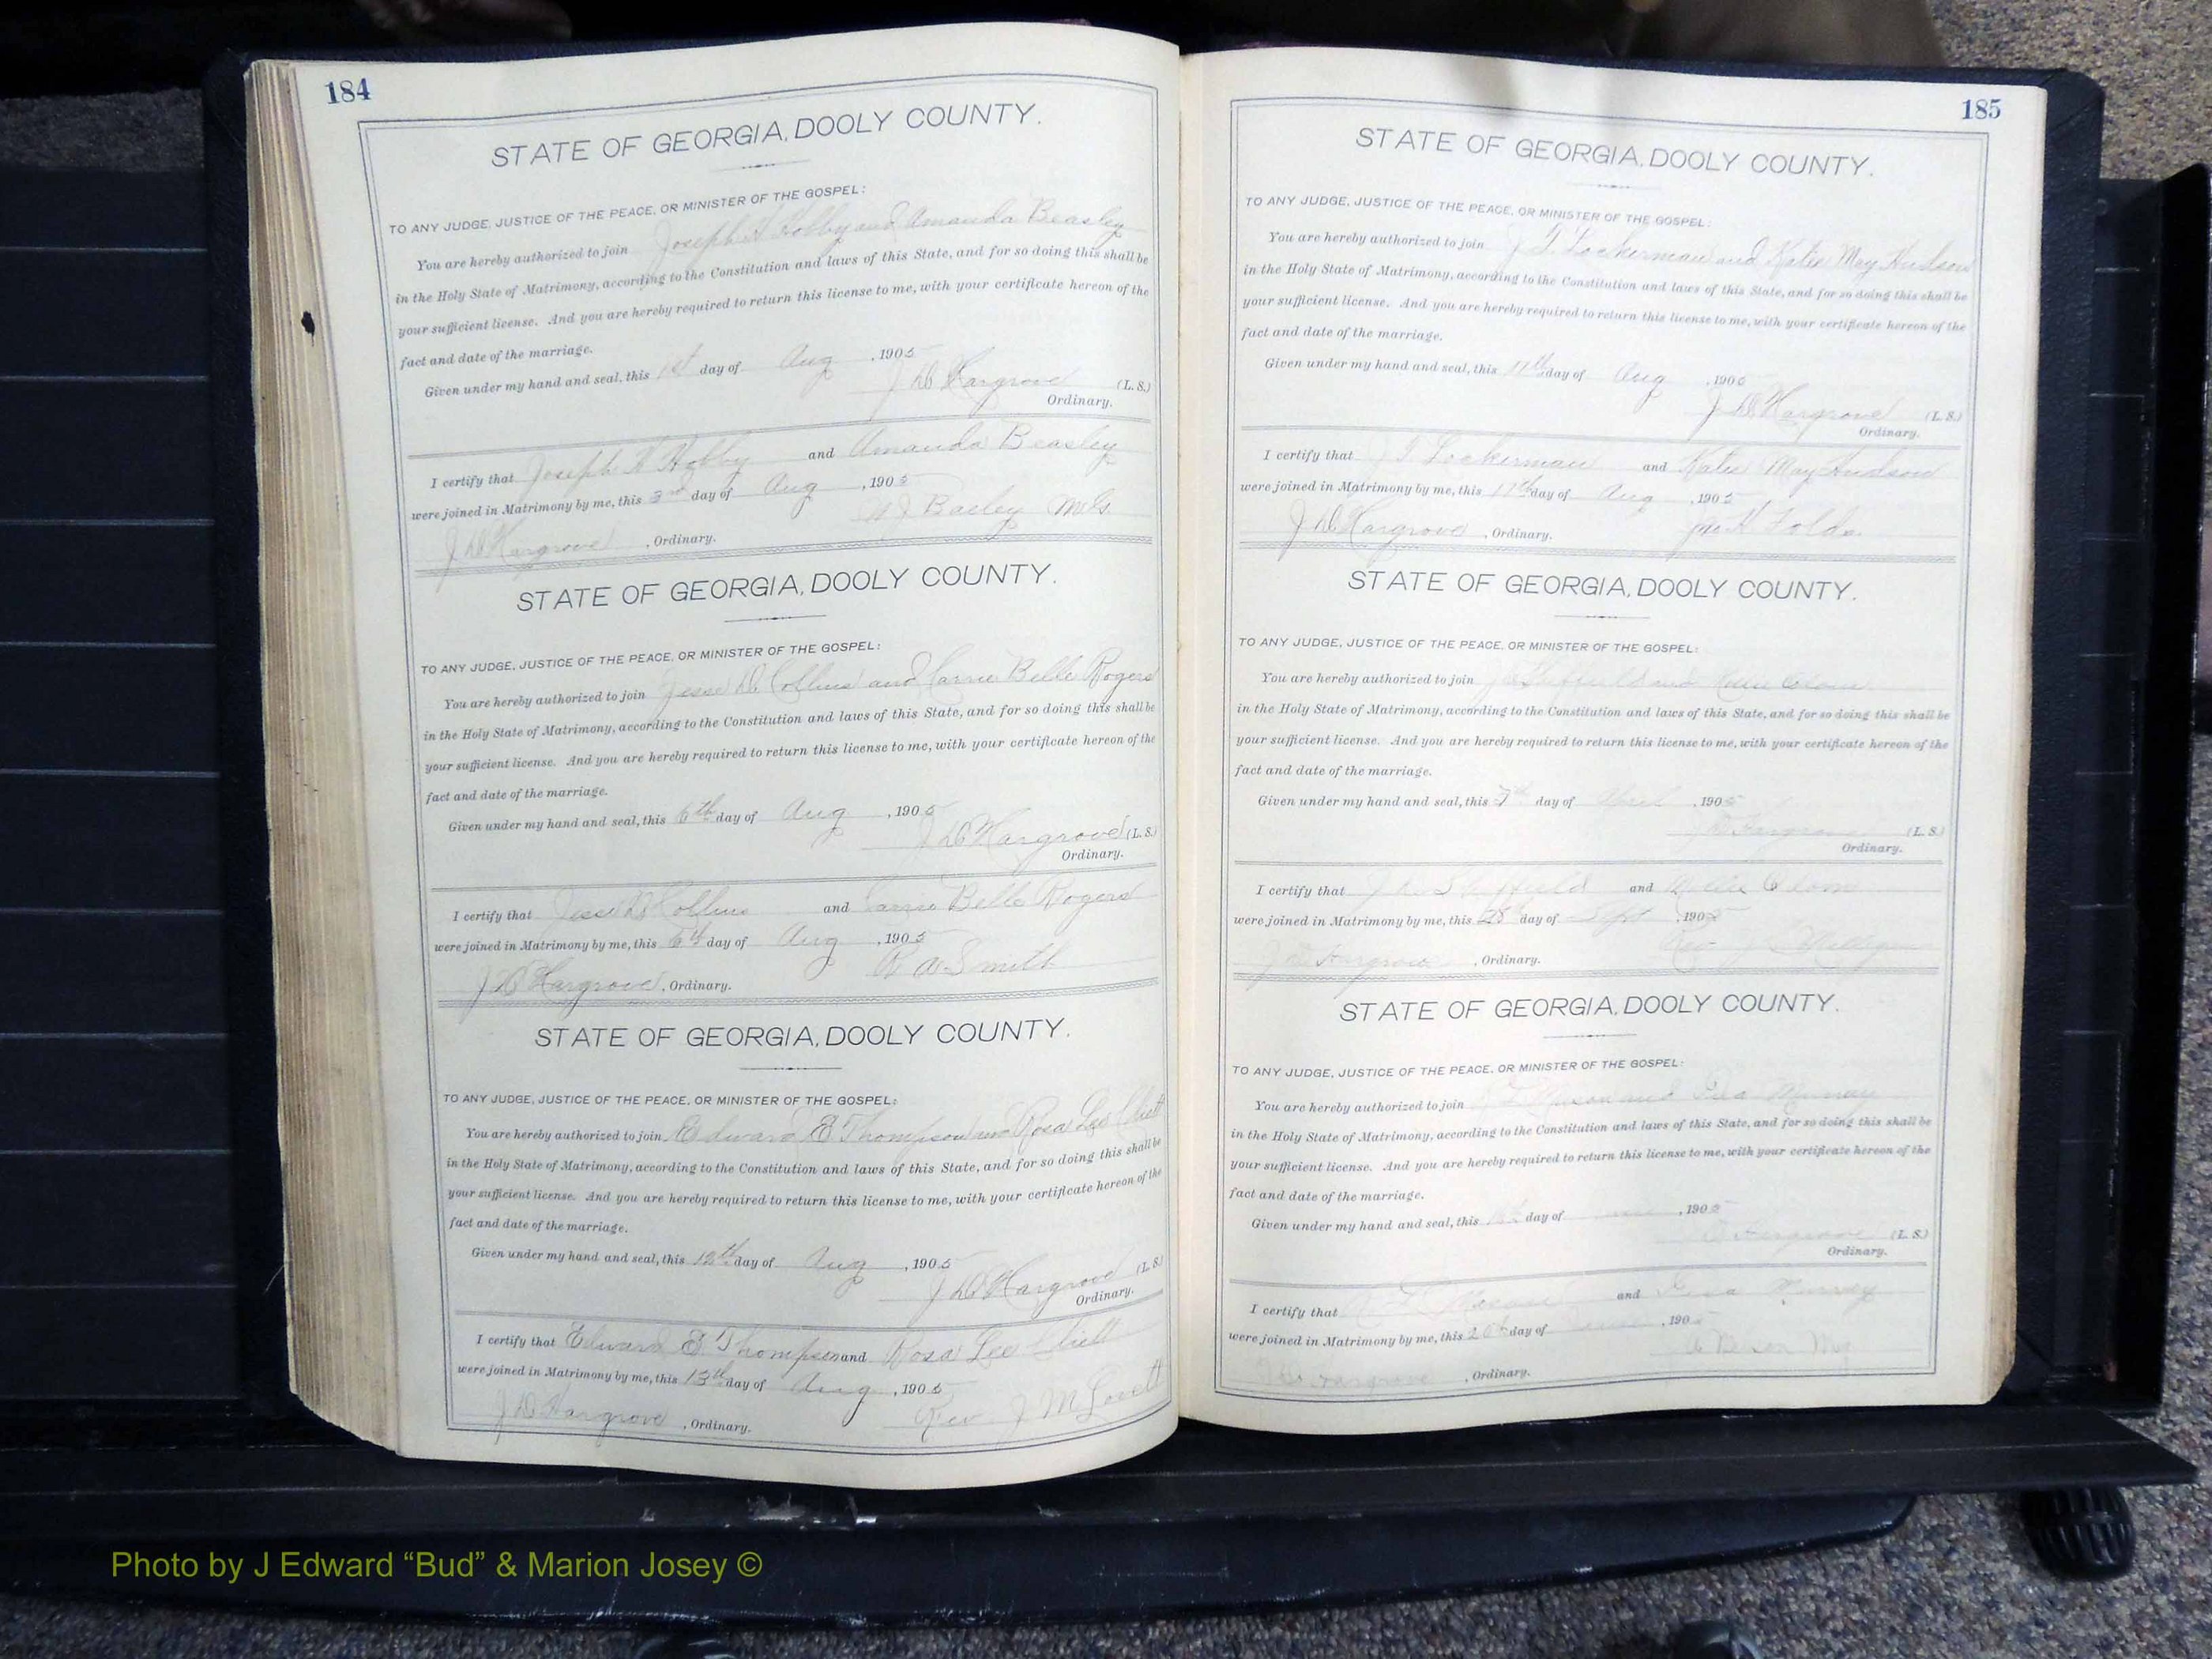 184
STATE OF GEORGIA, DOOLY COUNTY.
TO ANY JUDGE, JUSTICE OF THE PEACE, OR MINISTER OF THE GOSPEL:
You are hereby authorized to join Joseph H Hobby and Amanda Beasley
in the Holy State of Matrimony, according to the Constitution and laws of this State, and for so doing this shall be
your sufficient license. And you are hereby required to return this license to me, with your certificate hereon of the
fact and date of the marriage.
Given under my hand and seal, this 1st day of Aug, 1905
J D Hargrove (L. S.)
Ordinary.
I certify that Joseph H Hobby and Amanda Beasley
were joined in Matrimony by me, this 3rd day of Aug, 1905
J D Hargrove, Ordinary. Basley
STATE OF GEORGIA, DOOLY COUNTY.
TO ANY JUDGE, JUSTICE OF THE PEACE, OR MINISTER OF THE GOSPEL:
You are hereby authorized to join Jesse D Collins and Carrie Belle Rogers
in the Holy State of Matrimony, according to the Constitution and laws of this State, and for so doing this shall be
your sufficient license. And you are hereby required to return this license to me, with your certificate hereon of the
fact and date of the marriage.
Given under my hand and seal, this 6th day of Aug, 1905
J D Hargrove (L. S.)
Ordinary.
I certify that Jesse D Collins and Carrie Belle Rogers
were joined in Matrimony by me, this 6th day of Aug, 1905
J D Hargrove, Ordinary. R A Smith
STATE OF GEORGIA, DOOLY COUNTY.
TO ANY JUDGE, JUSTICE OF THE PEACE, OR MINISTER OF THE GOSPEL:
You are hereby authorized to join Edward E Thompson and Rosa Lee
in the Holy State of Matrimony, according to the Constitution and laws of this State, and for so doing this shall be
your sufficient license. And you are hereby required to return this license to me, with your certificate hereon of the
fact and date of the marriage.
Given under my hand and seal, this 12th day of Aug, 1905
J D Hargrove (L. S.)
Ordinary.
I certify that Edward E Thompson and Rosa Lee
were joined in Matrimony by me, this 13th day of Aug, 1905
J D Hargrove, Ordinary. Rev. J M Lovett
185
STATE OF GEORGIA, DOOLY COUNTY.
TO ANY JUDGE, JUSTICE OF THE PEACE, OR MINISTER OF THE GOSPEL:
You are hereby authorized to join J T Lockerman and Katie May Hudson
in the Holy State of Matrimony, according to the Constitution and laws of this State, and for so doing this shall be
your sufficient license. And you are hereby required to return this license to me, with your certificate hereon of the
fact and date of the marriage.
Given under my hand and seal, this 17th day of Aug, 1905
J D Hargrove (L. S.)
Ordinary.
I certify that J T Lockerman and Katie May Hudson
were joined in Matrimony by me, this 17th day of Aug, 1905
J D Hargrove, Ordinary.
STATE OF GEORGIA, DOOLY COUNTY.
TO ANY JUDGE, JUSTICE OF THE PEACE, OR MINISTER OF THE GOSPEL:
You are hereby authorized to join Sheffield and
in the Holy State of Matrimony, according to the Constitution and laws of this State, and for so doing this shall be
your sufficient license. And you are hereby required to return this license to me, with your certificate hereon of the
fact and date of the marriage.
Given under my hand and seal, this 7th day of April, 1905
J D Hargrove (L. S.)
Ordinary.
I certify that Sheffield and
were joined in Matrimony by me, this 28th day of Sept, 1905
J D Hargrove, Ordinary. Rev
STATE OF GEORGIA, DOOLY COUNTY.
TO ANY JUDGE, JUSTICE OF THE PEACE, OR MINISTER OF THE GOSPEL:
You are hereby authorized to join and Murray
in the Holy State of Matrimony, according to the Constitution and laws of this State, and for so doing this shall be
your sufficient license. And you are hereby required to return this license to me, with your certificate hereon of the
fact and date of the marriage.
Given under my hand and seal, this day of , 1905
Hargrove (L. S.)
Ordinary.
I certify that and
were joined in Matrimony by me, this day of , 190
J D Hargrove, Ordinary.
Photo by J Edward “Bud” & Marion Josey ©